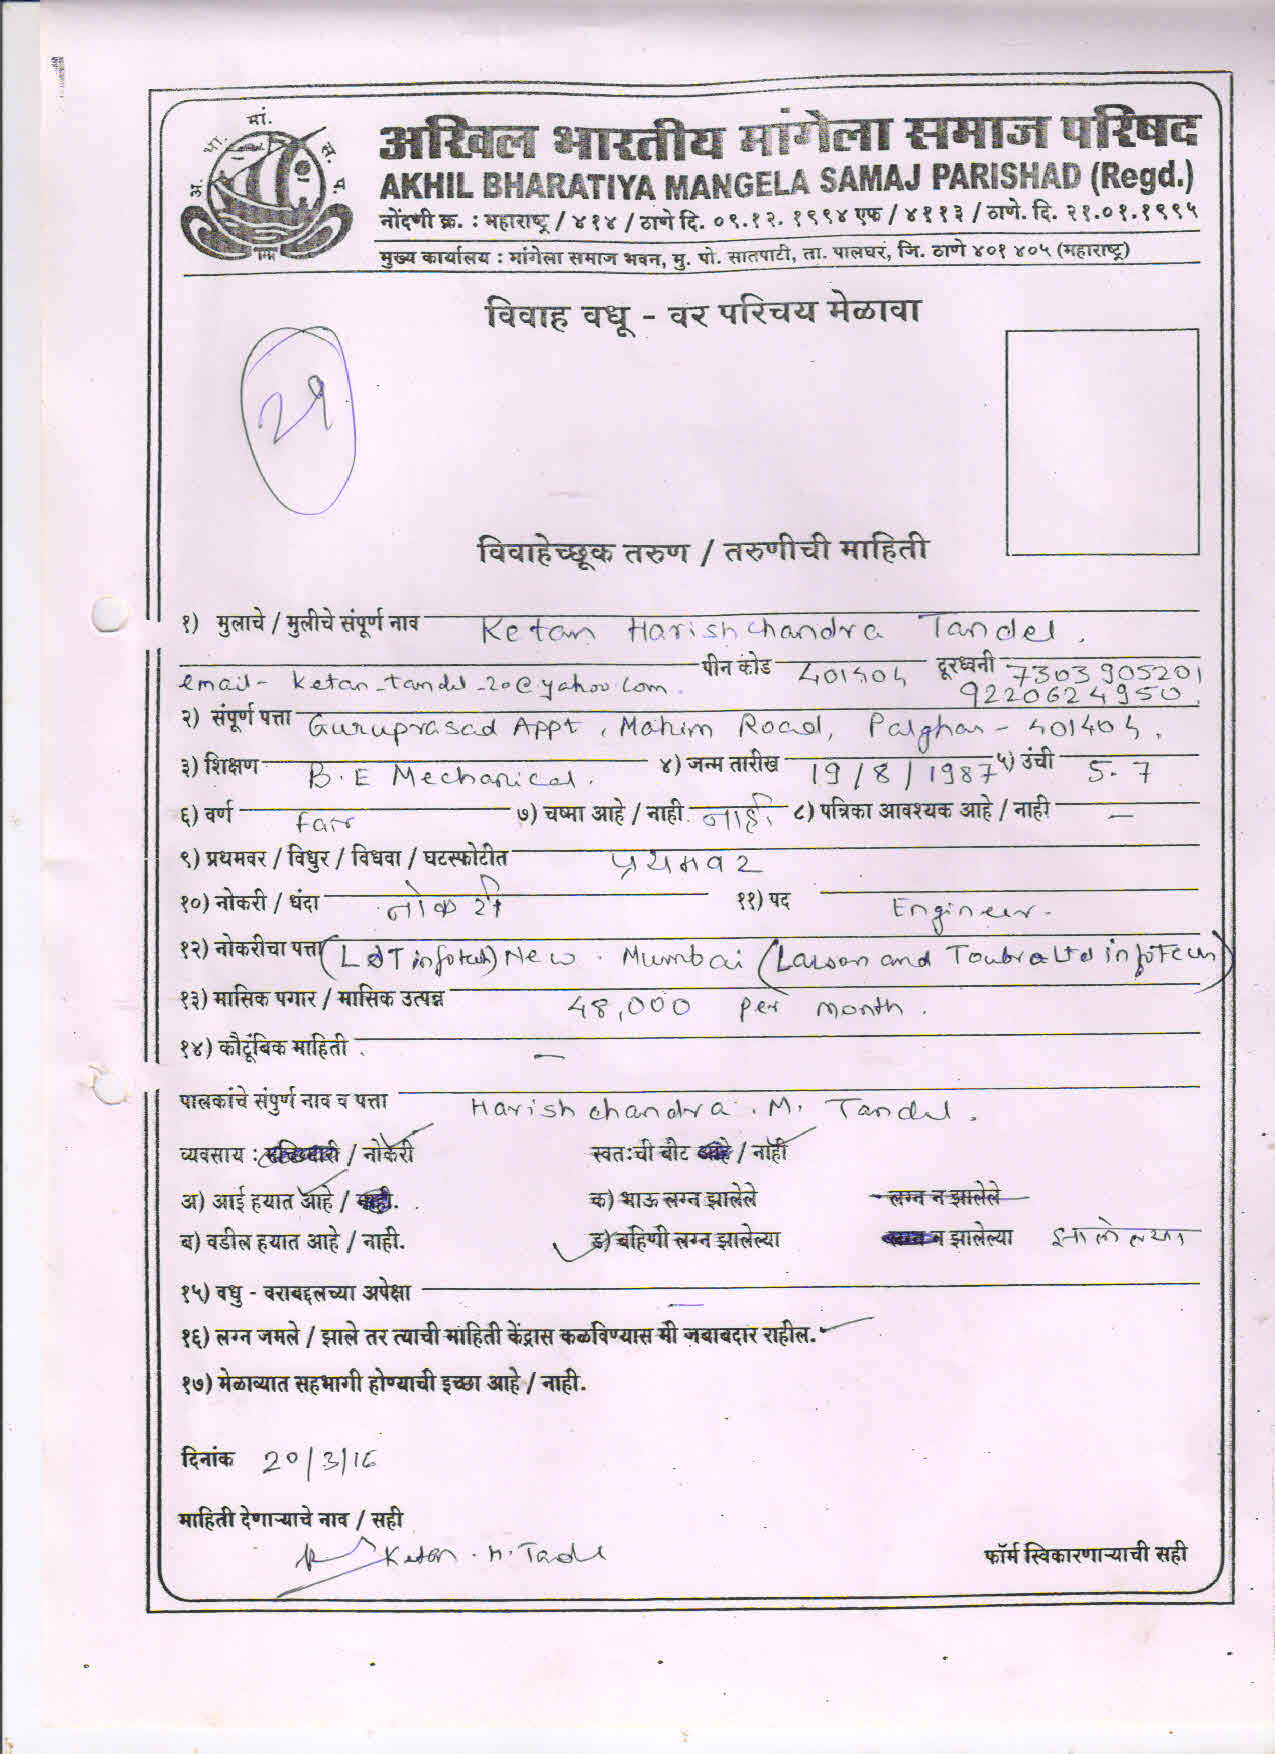 मां.
भा. स.
अ. प.
अखिल भारतीय मांगेला समाज परिषद
AKHIL BHARATIYA MANGELA SAMAJ PARISHAD (Regd.)
नोंदणी क्र. : महाराष्ट्र / ४१४ / ठाणे दि. ०९.१२. १९९४ एफ / ४११३ / ठाणे. दि. २१.०१.१९९५
मुख्य कार्यालय : मांगेला समाज भवन, मु. पो. सातपाटी, ता. पालघर, जि. ठाणे ४०१ ४०५ (महाराष्ट्र)
विवाह वधू - वर परिचय मेळावा
29
विवाहेच्छूक तरुण / तरुणीची माहिती
१) मुलाचे / मुलीचे संपूर्ण नाव Ketan Harishchandra Tandel.
पीन कोड 401404 दूरध्वनी 7303905201
email- ketan_tandel_20@yahoo.com. 9220624950.
२) संपूर्ण पत्ता Guruprasad Appt, Mahim Road, Palghar - 401404.
३) शिक्षण B.E Mechanical. ४) जन्म तारीख 19/8/1987 ५) उंची 5.7
६) वर्ण fair ७) चष्मा आहे / नाही. नाही. ८) पत्रिका आवश्यक आहे / नाही —
९) प्रथमवर / विधुर / विधवा / घटस्फोटीत प्रथमवर
१०) नोकरी / धंदा नोकरी ११) पद Engineer.
१२) नोकरीचा पत्ता (L&T infotech) New. Mumbai (Larson and Toubro Ltd infotech)
१३) मासिक पगार / मासिक उत्पन्न 48,000 per month.
१४) कौटूंबिक माहिती . —
पालकांचे संपुर्ण नाव व पत्ता Harishchandra. M. Tandel.
व्यवसाय : / नोकरी स्वतःची बोट आहे / नाही
अ) आई हयात आहे / नाही. क) भाऊ लग्न झालेले लग्न न झालेले
ब) वडील हयात आहे / नाही. ड) बहिणी लग्न झालेल्या लग्न न झालेल्या झालेल्या
१५) वधु - वराबद्दलच्या अपेक्षा —
१६) लग्न जमले / झाले तर त्याची माहिती केंद्रास कळविण्यास मी जबाबदार राहील.
१७) मेळाव्यात सहभागी होण्याची इच्छा आहे / नाही.
दिनांक 20/3/16
माहिती देणाऱ्याचे नाव / सही
Ketan. H. Tandel
फॉर्म स्विकारणाऱ्याची सही